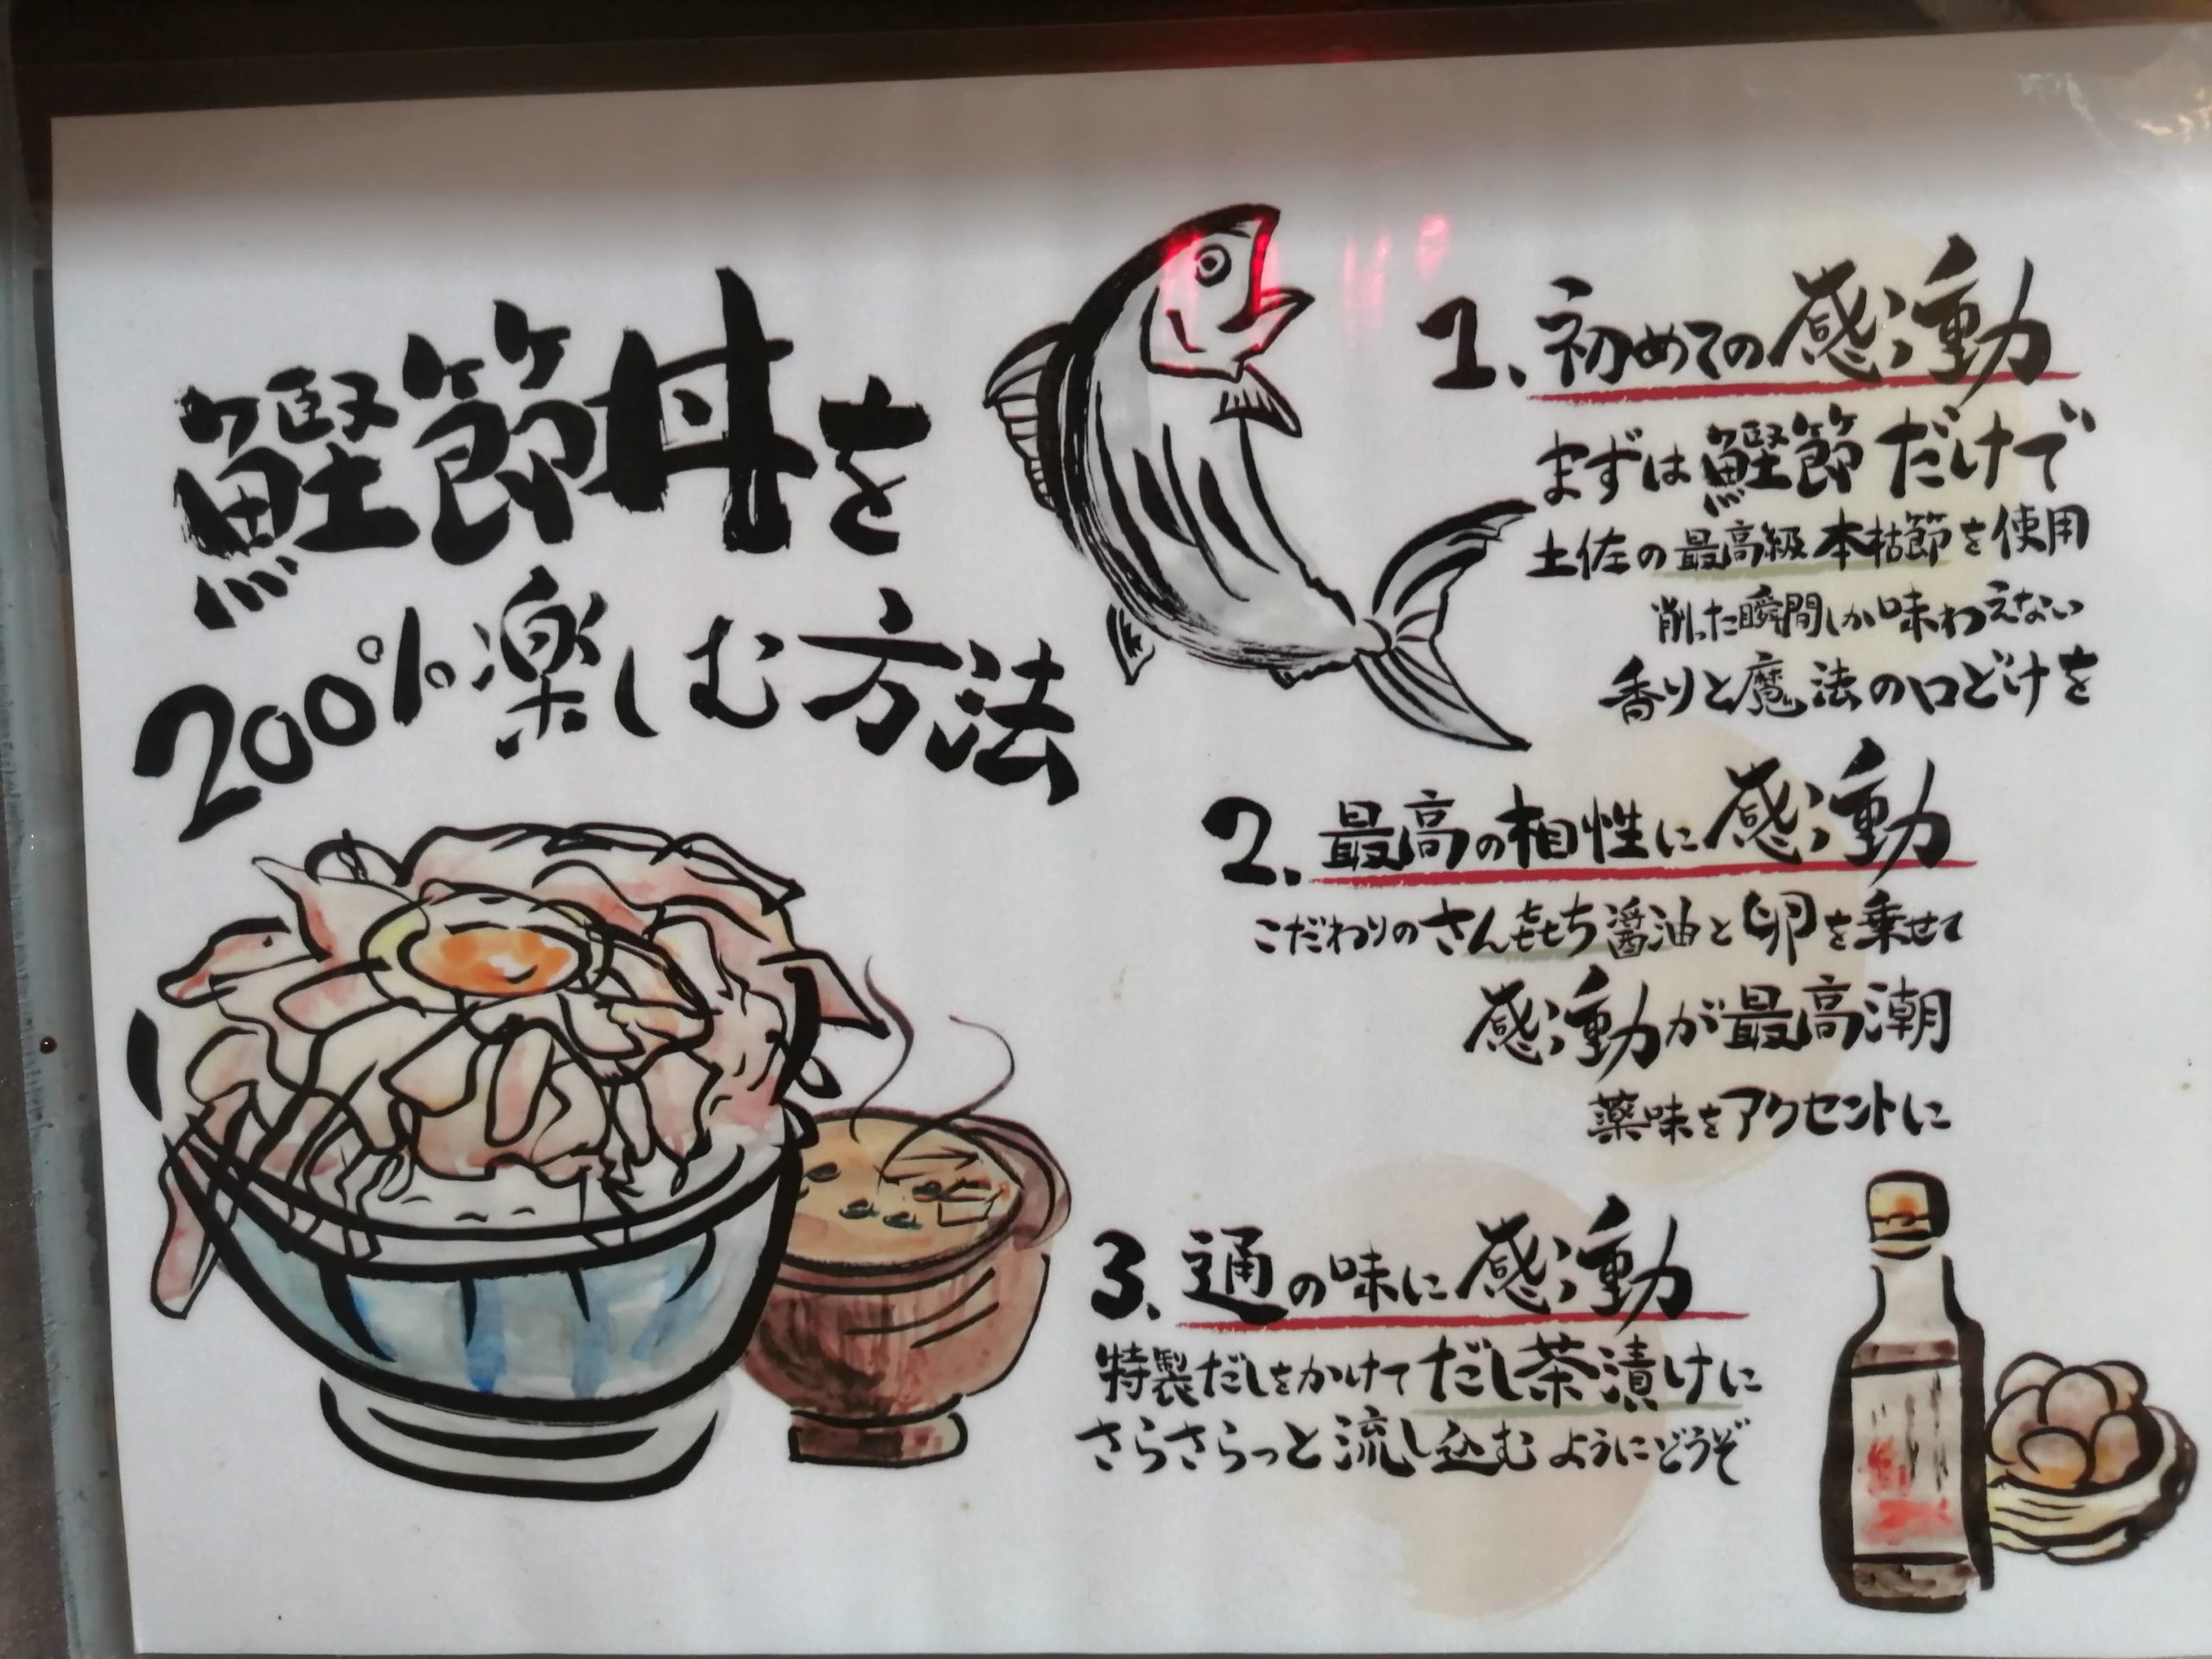 鰹節丼を
200%楽しむ方法
1、初めての感動
まずは鰹節だけで
土佐の最高級本枯節を使用
削った瞬間しか味わえない
香りと魔法の口どけを
2、最高の相性に感動
こだわりのさんもち醤油と卵を乗せて
感動が最高潮
薬味をアクセントに
3、通の味に感動
特製だしをかけてだし茶漬けに
さらさらっと流し込むようにどうぞ